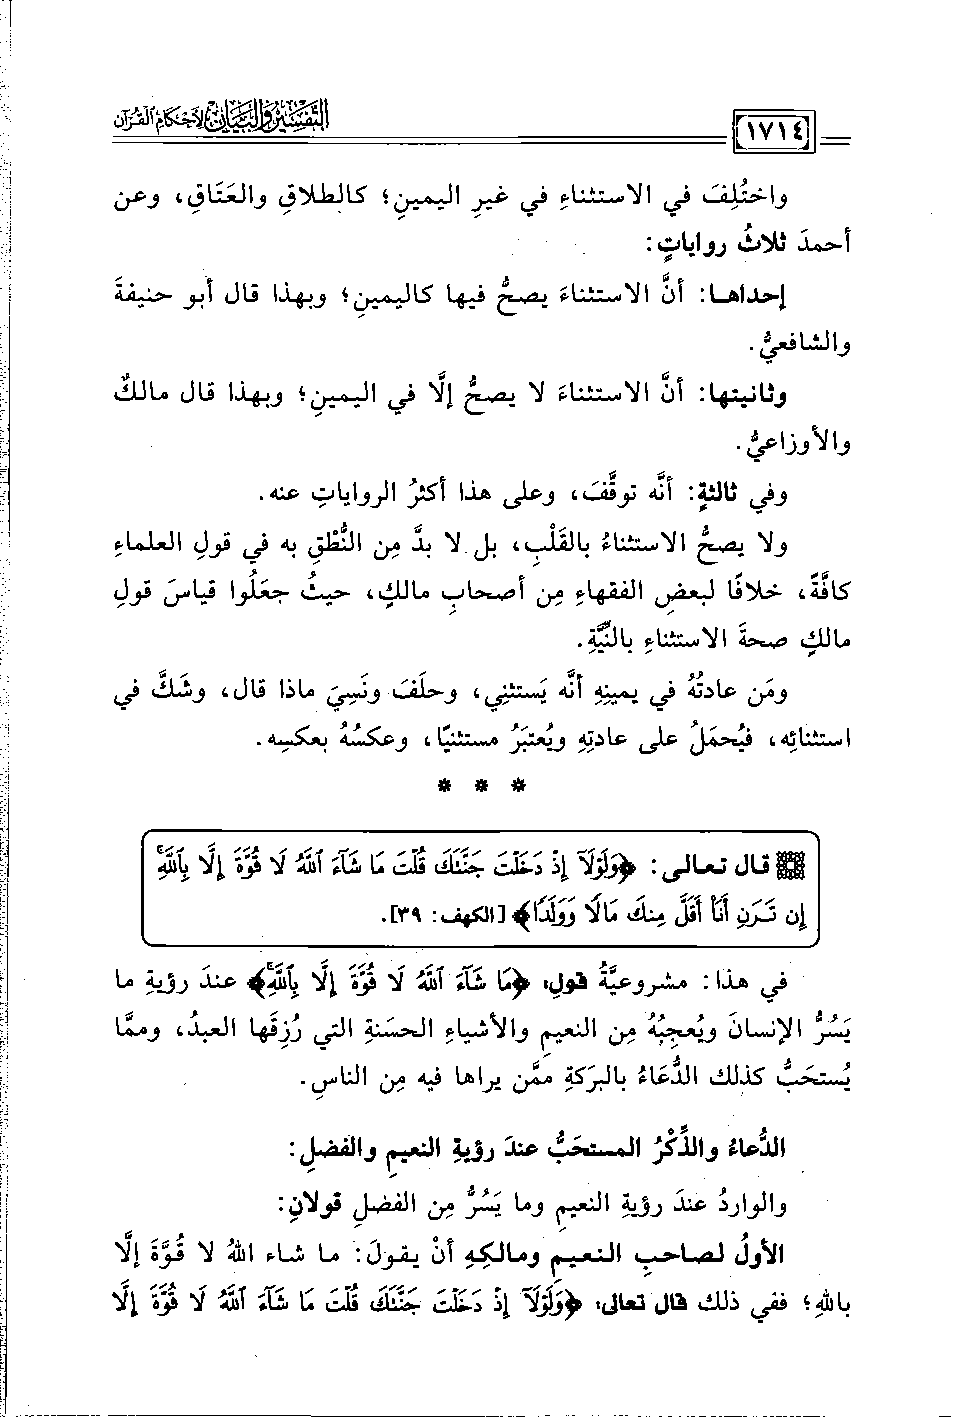 التفسير والبيان لأحكام القرآن
١٧١٤
واختُلِفَ في الاستثناءِ في غيرِ اليمينِ؛ كالطلاقِ والعَتَاقِ، وعن
أحمدَ ثلاثُ رواياتٍ:
إحداها: أنَّ الاستثناءَ يصحُّ فيها كاليمينِ؛ وبهذا قال أبو حنيفةَ
والشافعيُّ.
وثانيتها: أنَّ الاستثناءَ لا يصحُّ إلَّا في اليمينِ؛ وبهذا قال مالكٌ
والأوزاعيُّ.
وفي ثالثةٍ: أنَّه توقَّفَ، وعلى هذا أكثرُ الرواياتِ عنه.
ولا يصحُّ الاستثناءُ بالقَلْبِ، بل لا بدَّ مِن النُّطْقِ به في قولِ العلماءِ
كافَّةً، خلافًا لبعضِ الفقهاءِ مِن أصحابِ مالكٍ، حيثُ جعَلُوا قياسَ قولِ
مالكٍ صحةَ الاستثناءِ بالنِّيَّةِ.
ومَن عادتُهُ في يمينِهِ أنَّه يَستثنِي، وحلَفَ ونَسِيَ ماذا قال، وشَكَّ في
استثنائِه، فيُحمَلُ على عادتِهِ ويُعتبَرُ مستثنيًا، وعكسُهُ بعكسِه.
* * *
قال تعالى: ﴿وَلَوْلَآ إِذْ دَخَلْتَ جَنَّتَكَ قُلْتَ مَا شَآءَ ٱللَّهُ لَا قُوَّةَ إِلَّا بِٱللَّهِۚ
إِن تَرَنِ أَنَا۠ أَقَلَّ مِنكَ مَالًا وَوَلَدًا﴾ [الكهف: ٣٩].
في هذا: مشروعيَّةُ قولِ: ﴿مَا شَآءَ ٱللَّهُ لَا قُوَّةَ إِلَّا بِٱللَّهِۚ﴾ عندَ رؤيةِ ما
يَسُرُّ الإنسانَ ويُعجِبُهُ مِن النعيمِ والأشياءِ الحسَنةِ التي رُزِقَها العبدُ، وممَّا
يُستحَبُّ كذلك الدُّعَاءُ بالبرَكةِ ممَّن يراها فيه مِن الناسِ.
الدُّعاءُ والذِّكْرُ المستحَبُّ عندَ رؤيةِ النعيمِ والفضلِ:
والواردُ عندَ رؤيةِ النعيمِ وما يَسُرُّ مِن الفضلِ قولانِ:
الأولُ لصاحبِ النعيمِ ومالكِهِ أنْ يقولَ: ما شاء اللهُ لا قُوَّةَ إلَّا
باللهِ؛ ففي ذلك قال تعالى: ﴿وَلَوْلَآ إِذْ دَخَلْتَ جَنَّتَكَ قُلْتَ مَا شَآءَ ٱللَّهُ لَا قُوَّةَ إِلَّا